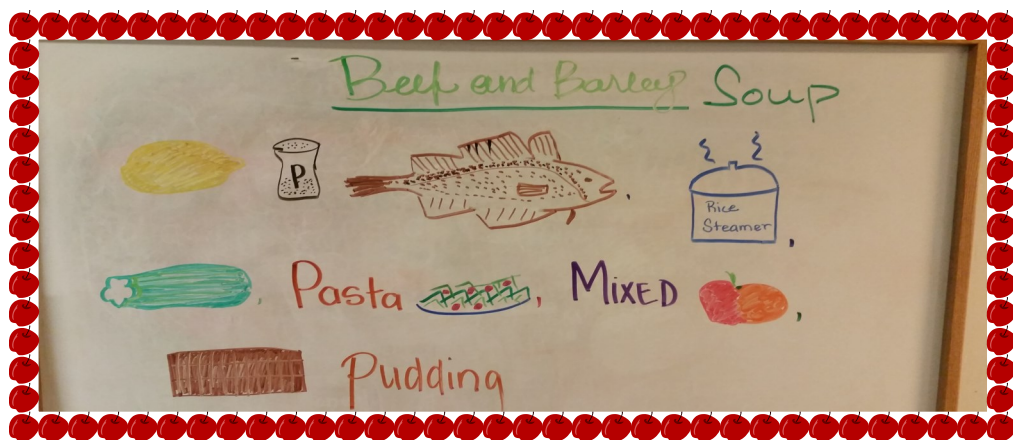 Beef and Barley Soup
P
Rice
Steamer,
Pasta , Mixed ,
Pudding